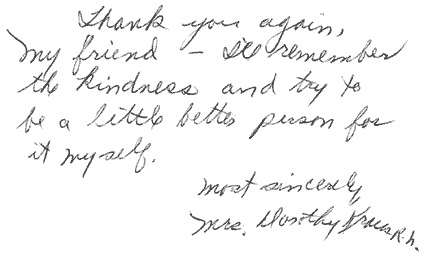 Thank you again,
my friend - I'll remember
the kindness and try to
be a little better person for
it myself.
Most sincerely,
Mrs. Dorothy Kraus R.N.